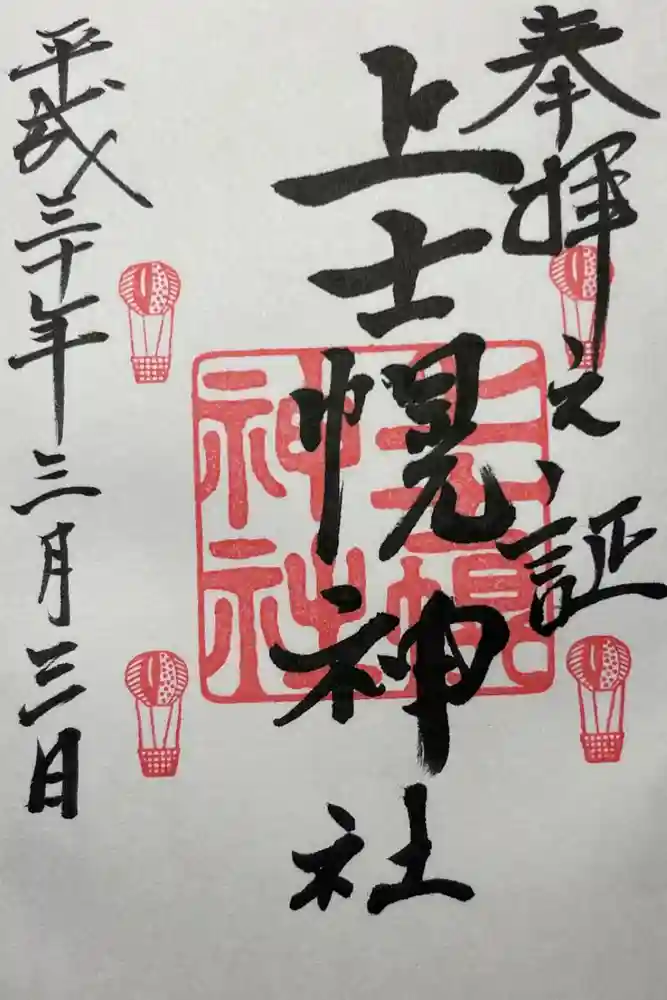 奉拝之証
上士幌神社
上士幌
神社
平成三十年三月三日